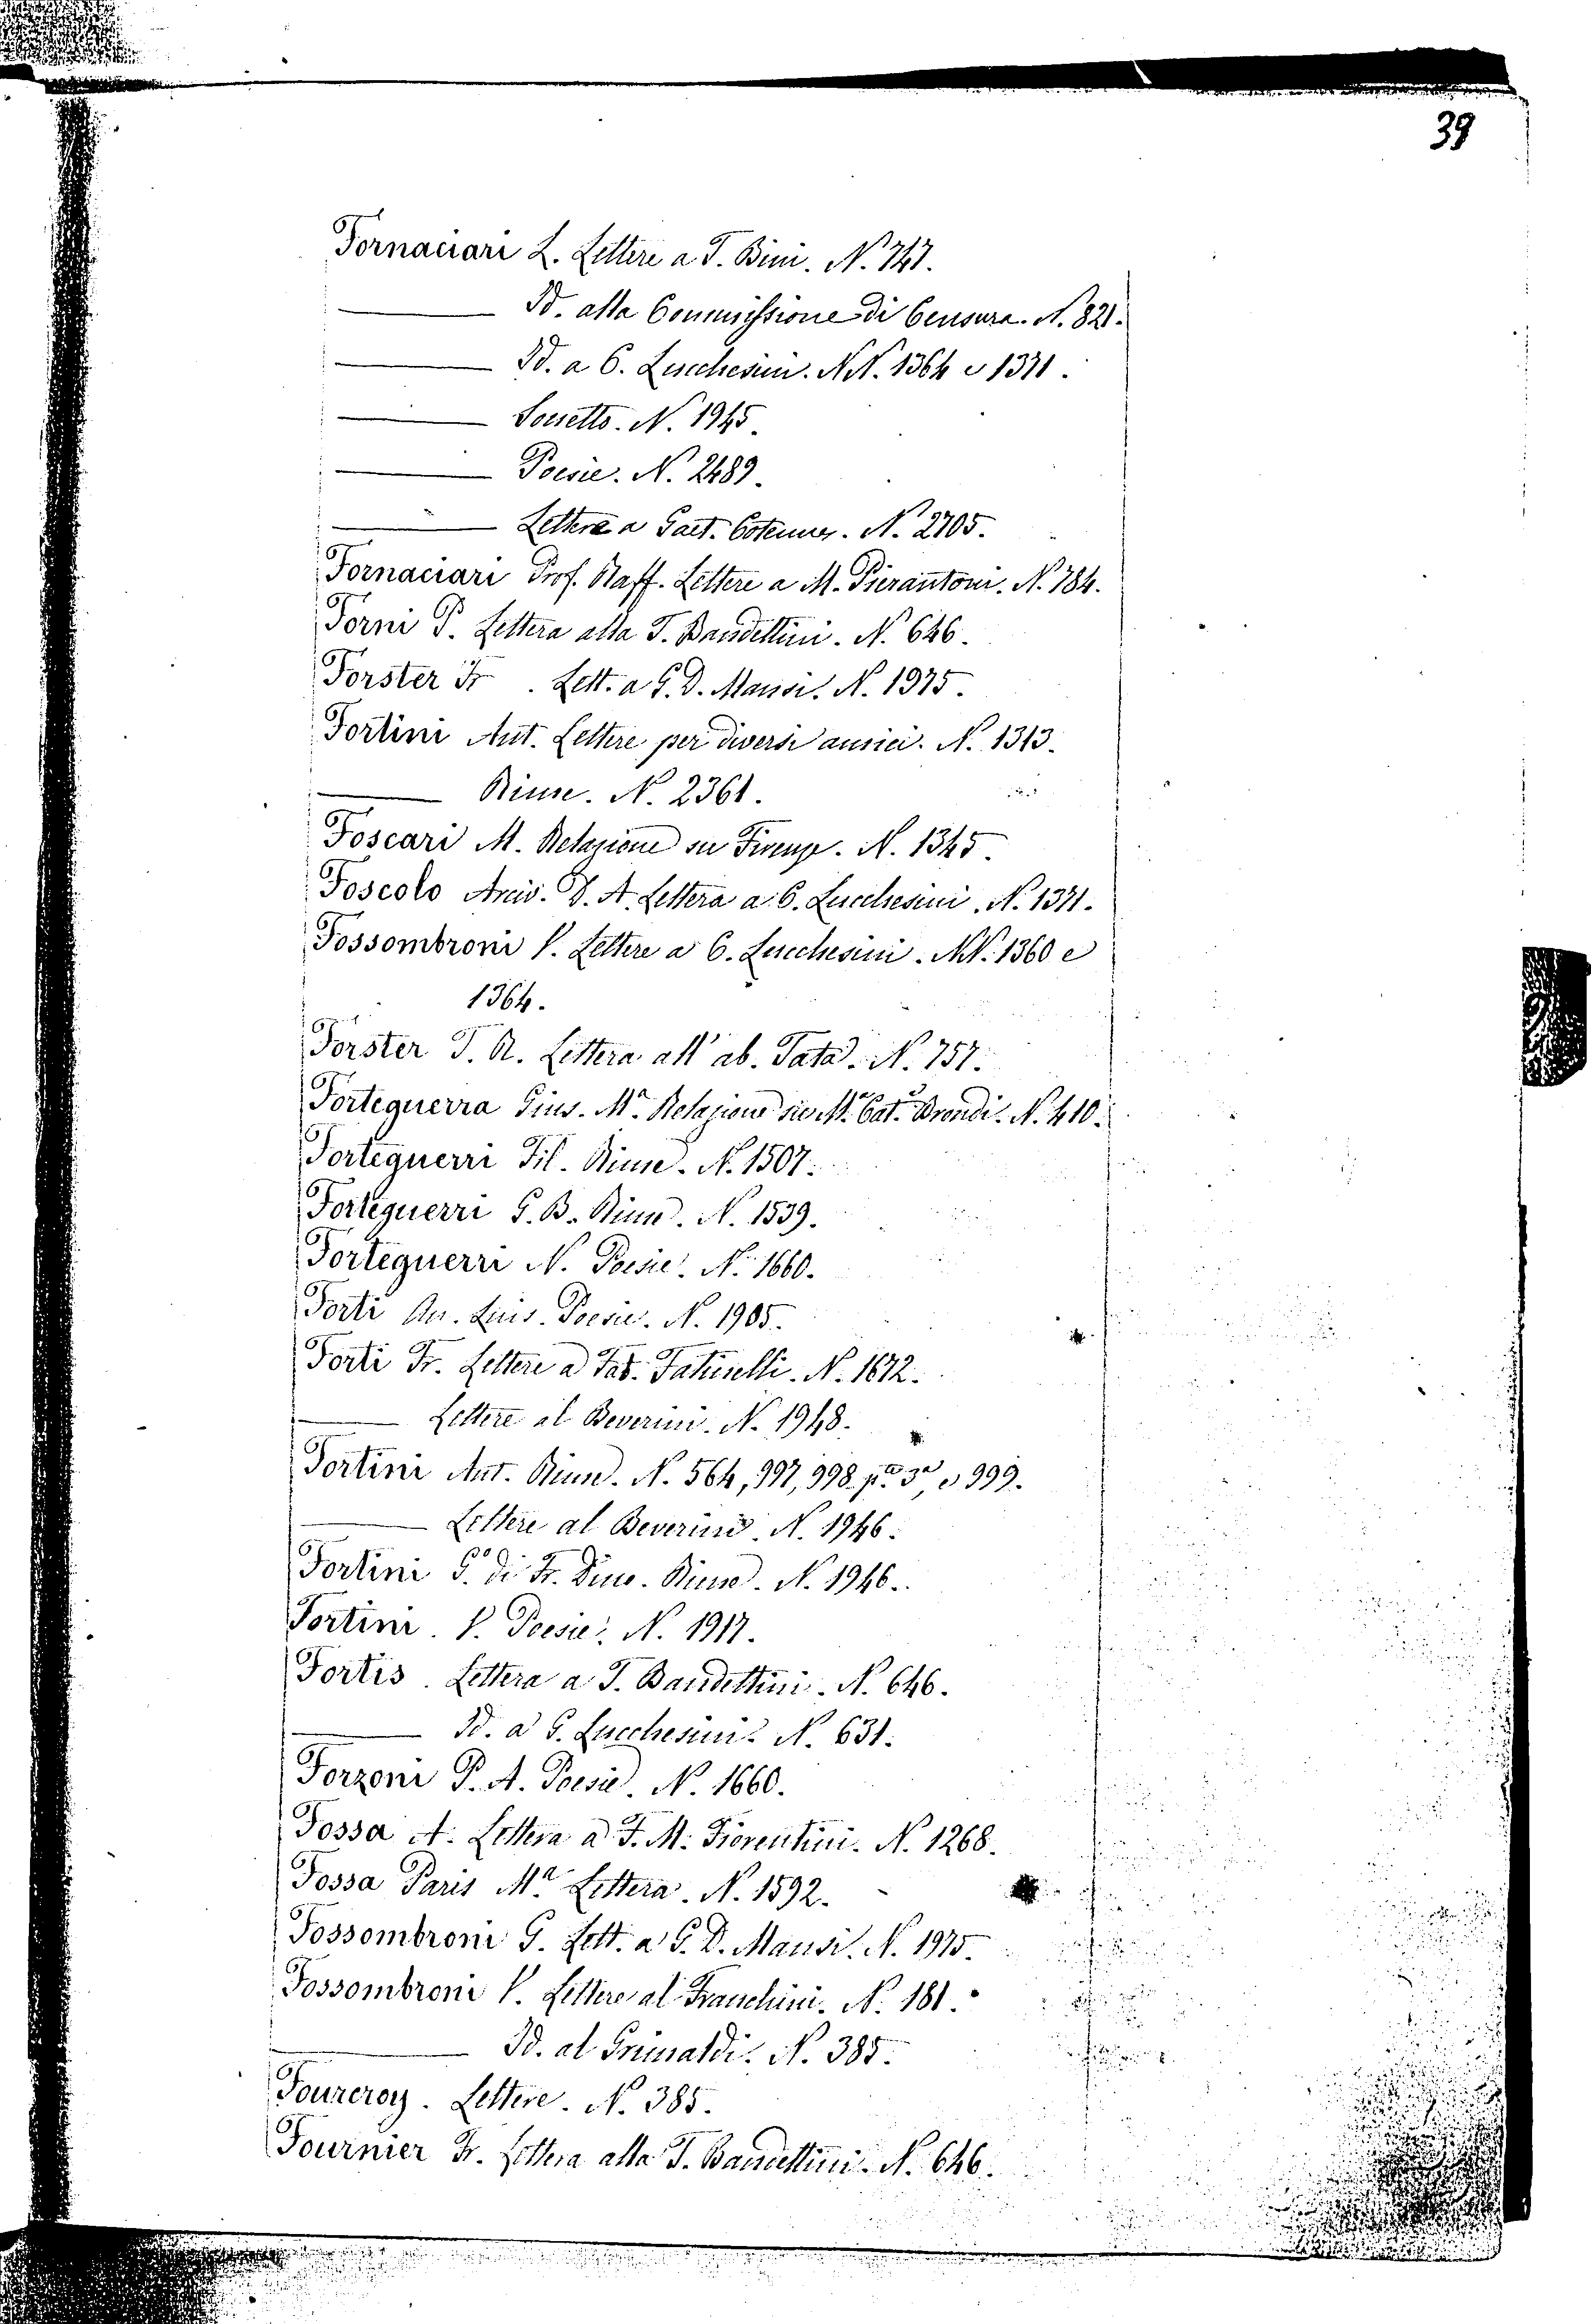 39
Fornaciari L. Lettere a T. Bini. N. 747.
——— Id. alla Commissione di Censura. N. 821.
——— Id. a C. Lucchesini. NN. 1364 e 1371.
——— Sonetto. N. 1945.
——— Poesie. N. 2489.
——— Lettera a Gaet. N. 2705.
Fornaciari Prof. Raff. Lettere a M. Pierantoni. N. 784.
Forni P. Lettera alla T. Bandettini. N. 646.
Forster Fr . Lett. a G. D. Mansi. N. 1975.
Fortini Ant. Lettere per diversi amici. N. 1313.
——— Rime. N. 2361.
Foscari M. Relazione su Firenze. N. 1345.
Foscolo Arciv. F. A. Lettera a C. Lucchesini. N. 1371.
Fossombroni V. Lettere a C. Lucchesini. NN. 1360 e
1364.
Forster T. R. Lettera all' ab. Tata. N. 757.
Forteguerra Gius. Mª Relazione su Mª Catª Brondi. N. 410.
Forteguerri Fil. Rime. N. 1507.
Forteguerri G. B. Rime. N. 1539.
Forteguerri N. Poesie. N. 1660.
Forti An. Luis. Poesie. N. 1905.
Forti Fr. Lettere a Fab. Fatinelli. N. 1672.
——— Lettere al Beverini. N. 1948.
Fortini Ant. Rime. N. 564, 997, 998 pte 3ª, e 999.
——— Lettere al Beverini. N. 1946.
Fortini Gº di Fr. Dino. Rime. N. 1946.
Fortini. V. Poesie. N. 1917.
Fortis. Lettera a T. Bandettini. N. 646.
——— Id. a G. Lucchesini. N. 631.
Forzoni P. A. Poesie. N. 1660.
Fossa A. Lettera a F. M. Fiorentini. N. 1268.
Fossa Paris Mª Lettera. N. 1592.
Fossombroni G. Lett. a G. D. Mansi. N. 1975.
Fossombroni V. Lettere al Franchini. N. 181.
——— Id. al Grimaldi. N. 385.
Fourcroy. Lettere. N. 385.
Fournier Fr. Lettera alla T. Bandettini. N. 646.